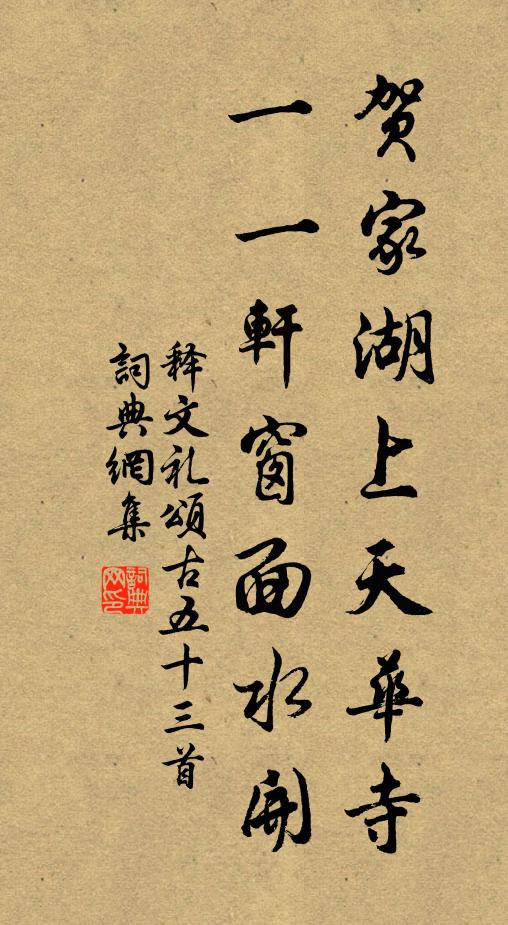 贺家湖上天華寺
一一軒窗面水開
释文礼頌古五十三首
詞典網集
詞典网印